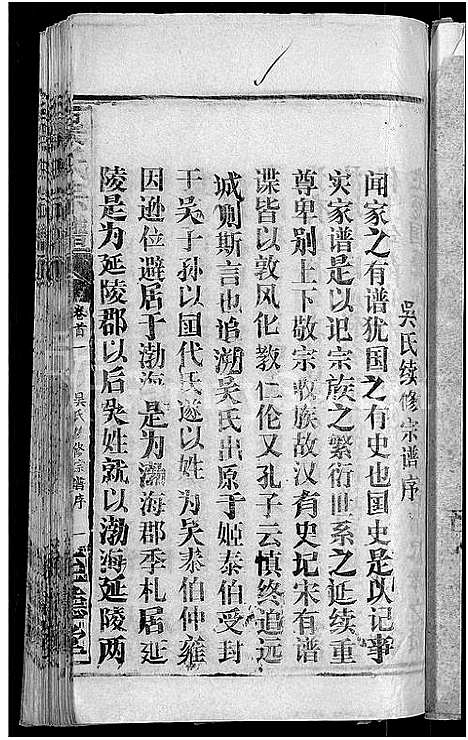 吳氏续修宗谱序
闻家之有谱犹国之有史也国史是以记事
实家谱是以记宗族之繁衍世系之延续重
尊卑别上下敬宗收族故汉有史记宋有谱
谍皆以敦风化教仁伦又孔子云慎终追远
诚则斯言也追溯吴氏出原于姬泰伯受封
于吴子孙以国代氏遂以姓为吴泰伯仲雍
因逊位避居于渤海是为渤海郡季札居延
陵是为延陵郡以后吳姓就以渤海延陵两
卷首
吳氏修宗谱序